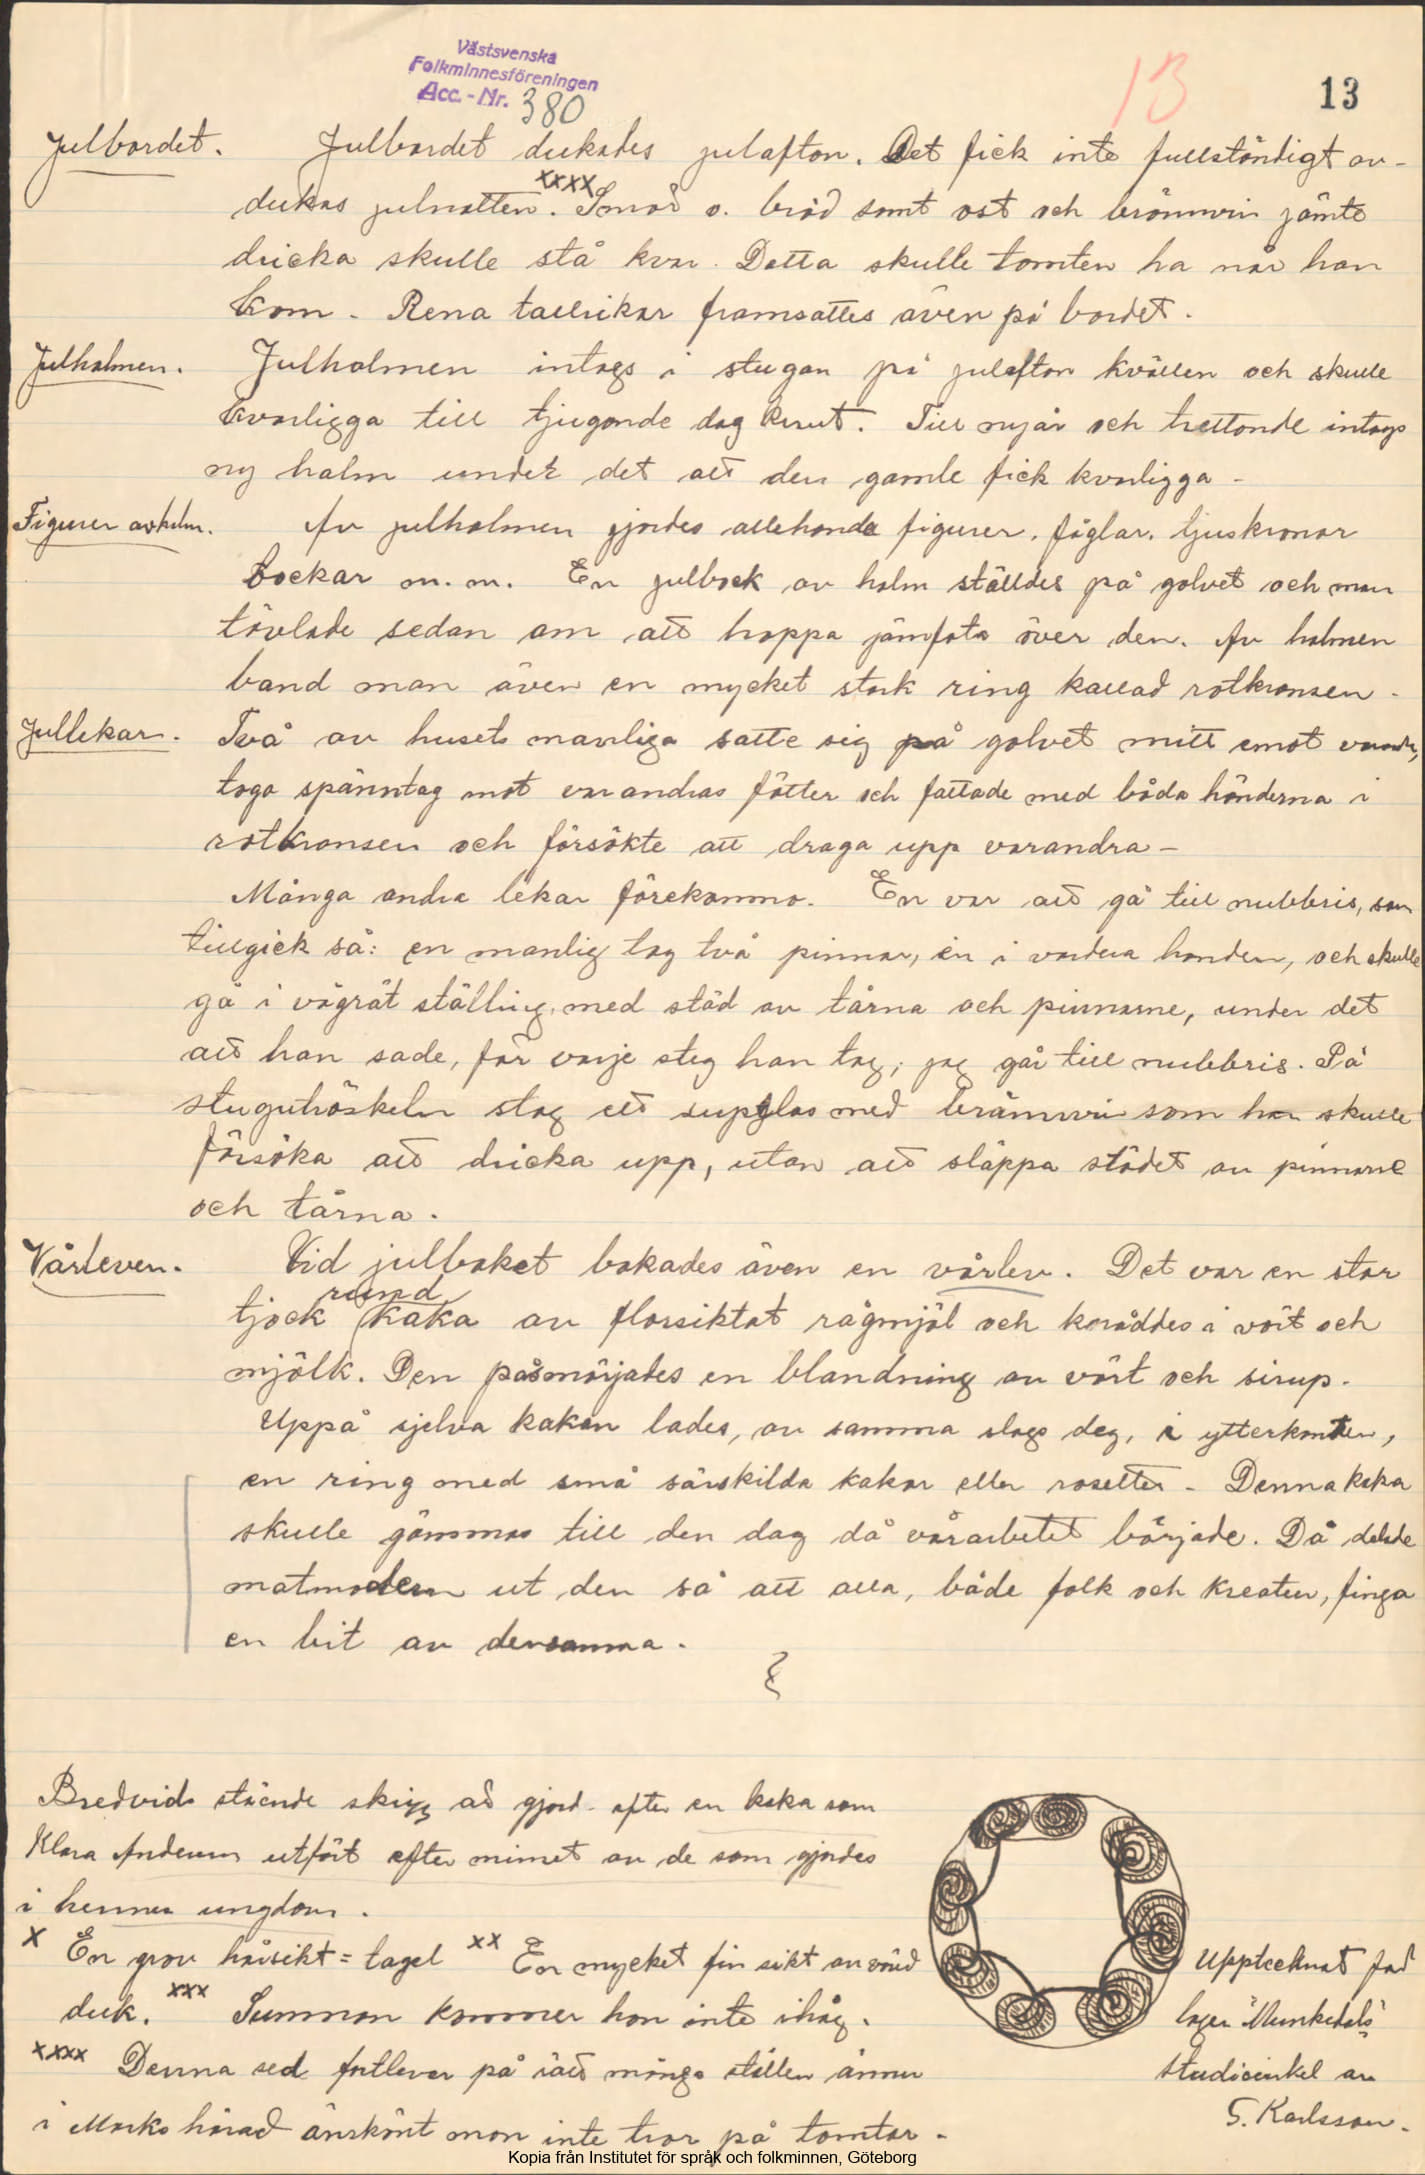 Västsvenska
Folkminnesföreningen
Acc.-Nr. 380
13
13
Julbordet. Julbordet dukades julafton. Det fick inte fullständigt av-
dukas julnatten. xxxx Smör o. bröd samt ost och brännvin jämte
dricka skulle stå kvar. Detta skulle tomten ha når han
kom. Rena tallrikar framsattes även på bordet.
Julhalmen. Julhalmen intogs i stugan på julafton kvällen och skulle
kvarligga till tjugonde dag Knut. Till nyår och trettonde intogs
ny halm under det att den gamle fick kvarligga.
Figurer av halm. Av julhalmen gjordes allehanda figurer, fåglar, ljuskronor
bockar m.m. En julbock av halm ställdes på golvet och man
tävlade sedan om att hoppa jämfota över den. Av halmen
band man även en mycket stark ring kallad rotkransen.
Jullekar. Två av husets manliga satte sig på golvet mitt emot varandra,
togo spänntag mot varandras fötter och fattade med båda händerna i
rotkransen och försökte att draga upp varandra –
Många andra lekar förekommo. En var att gå till nubbris, som
tillgick så: en manlig tog två pinnar, en i vardera handen, och skulle
gå i vågrät ställing, med stöd av tårna och pinnarne, under det
att han sade, för varje steg han tog; jag går till nubbris. På
stugutröskeln stog ett supglas med brännvin som han skulle
försöka att dricka upp, utan att släppa stödet av pinnarne
och tårna.
Vårleven. Vid julbaket bakades även en vårlev. Det var en stor
rund
tjock kaka av florsiktat rågmjöl och knåddes i vört och
mjölk. Den påsmörjades en blandning av vört och sirup.
Uppå sjelva kakan lades, av samma slags deg, i ytterkanten,
en ring med små särskilda kakor eller rosetter. Denna kaka
skulle gömmas till den dag då vårarbetet började. Då delade
matmodern ut den så att alla, både folk och kreatur, finga
en bit av densamma.
Bredvid stående skizz är gjord efter en kaka som
Klara Anderson utfört efter minnet av de som gjordes
i hennes ungdom.
x En grov hårsikt = tagel xx En mycket fin sikt använd
duk. xxx Summan kommer hon inte ihåg.
xxxx Denna sed fortlever på rätt många ställen ännu
i Marks härad änskönt man inte tror på tomtar.
Upptecknat för
lager "Munkedals"
studiecirkel av
G. Karlsson.
Kopia från Institutet för språk och folkminnen, Göteborg